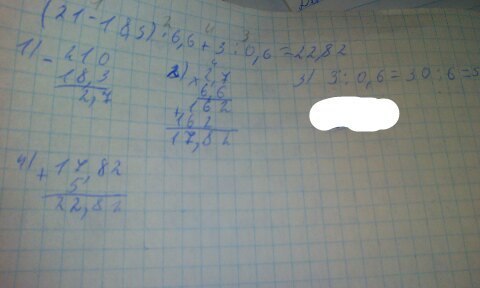 (21-18,3)·6,6+3:0,6=22,82
1) -21,0
18,3
2,7
2) ×2,7
6,6
+162
162
17,82
3) 3:0,6=30:6=5
4) +17,82
5
22,82